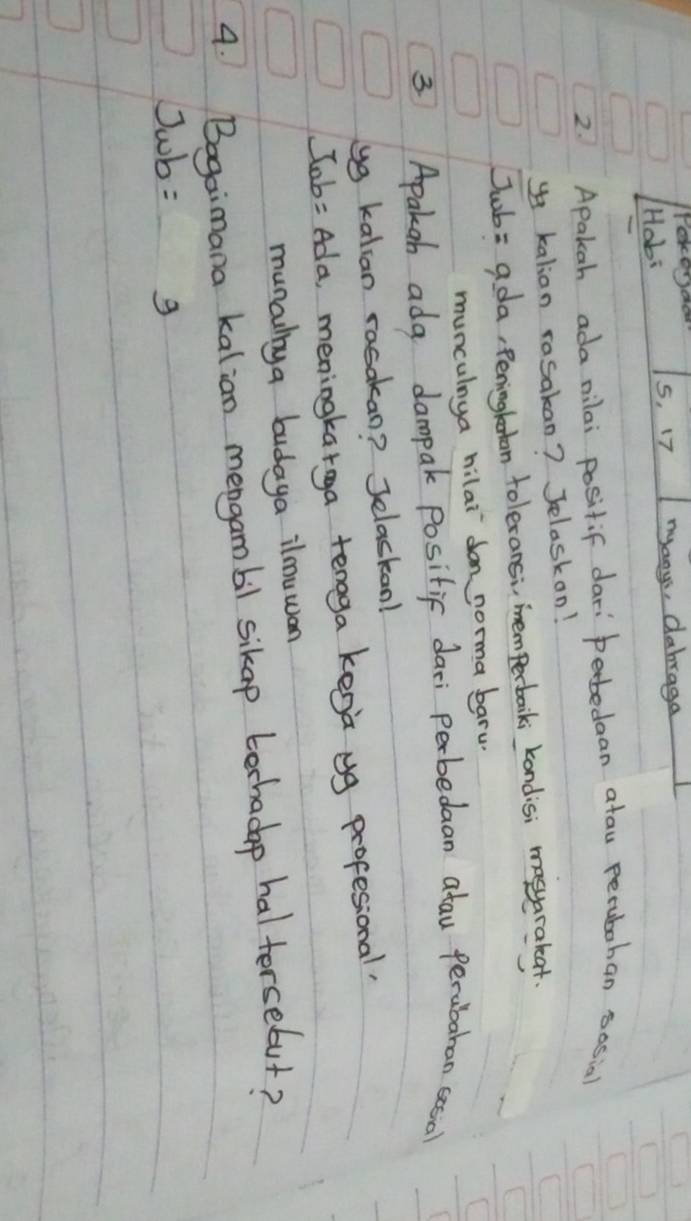 Pekerjaan
Hobi 5, 17 nyanyi, Olahraga
2. Apakah ada nilai positif dari perbedaan atau perubahan sosial
yg kalian rasakan? Jelaskan!
Jwb = ada, Peningkatan toleransi, memperbaiki kondisi masyarakat.
munculnya nilai dan norma baru.
3. Apakah ada dampak positif dari perbedaan atau perubahan sosial
yg kalian rasakan? Jelaskan!
Jwb = Ada, meningkatnya tenaga kerja yg profesional,
munculnya budaya ilmuwan
4. Bagaimana kalian mengambil sikap terhadap hal tersebut?
Jwb = g